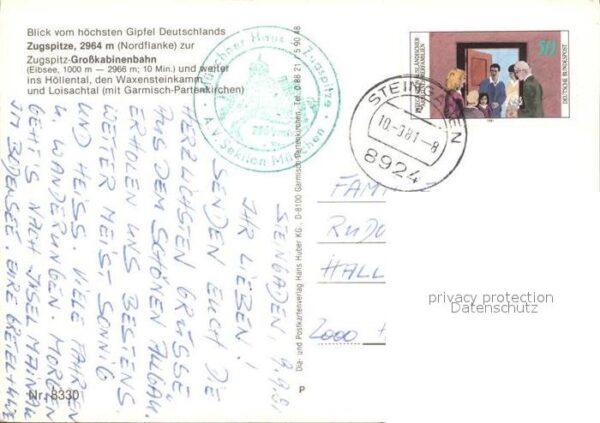 Blick vom höchsten Gipfel Deutschlands
Zugspitze, 2964 m (Nordflanke) zur
Zugspitz-Großkabinenbahn
(Eibsee, 1000 m — 2966 m; 10 Min.) und weiter
ins Höllental, den Waxensteinkamm
und Loisachtal (mit Garmisch-Partenkirchen)
Münchner Haus Zugspitze
A.V. Sektion München
50
DEUTSCHE BUNDESPOST
STEINGADEN
10.-9.81.-8
8924
STEINGADEN, 9.9.81
IHR LIEBEN!
SENDEN EUCH DIE
HERZLICHSTEN GRÜSSE
AUS DEM SCHÖNEN ALLGÄU.
ERHOLEN UNS BESTENS.
WETTER MEIST SONNIG
UND HEISS. VIELE FAHRTEN
U. WANDERUNGEN. MORGEN
GEHTS NACH INSEL MAINAU
IM BODENSEE. EURE
Dia- und Postkartenverlag Hans Huber KG., D-8100 Garmisch-Partenkirchen, Tel. 0 88 21 / 5 90 48
FAMILIE
RUDO
HALL
2000
privacy protection
Datenschutz
Nr. 8330
P